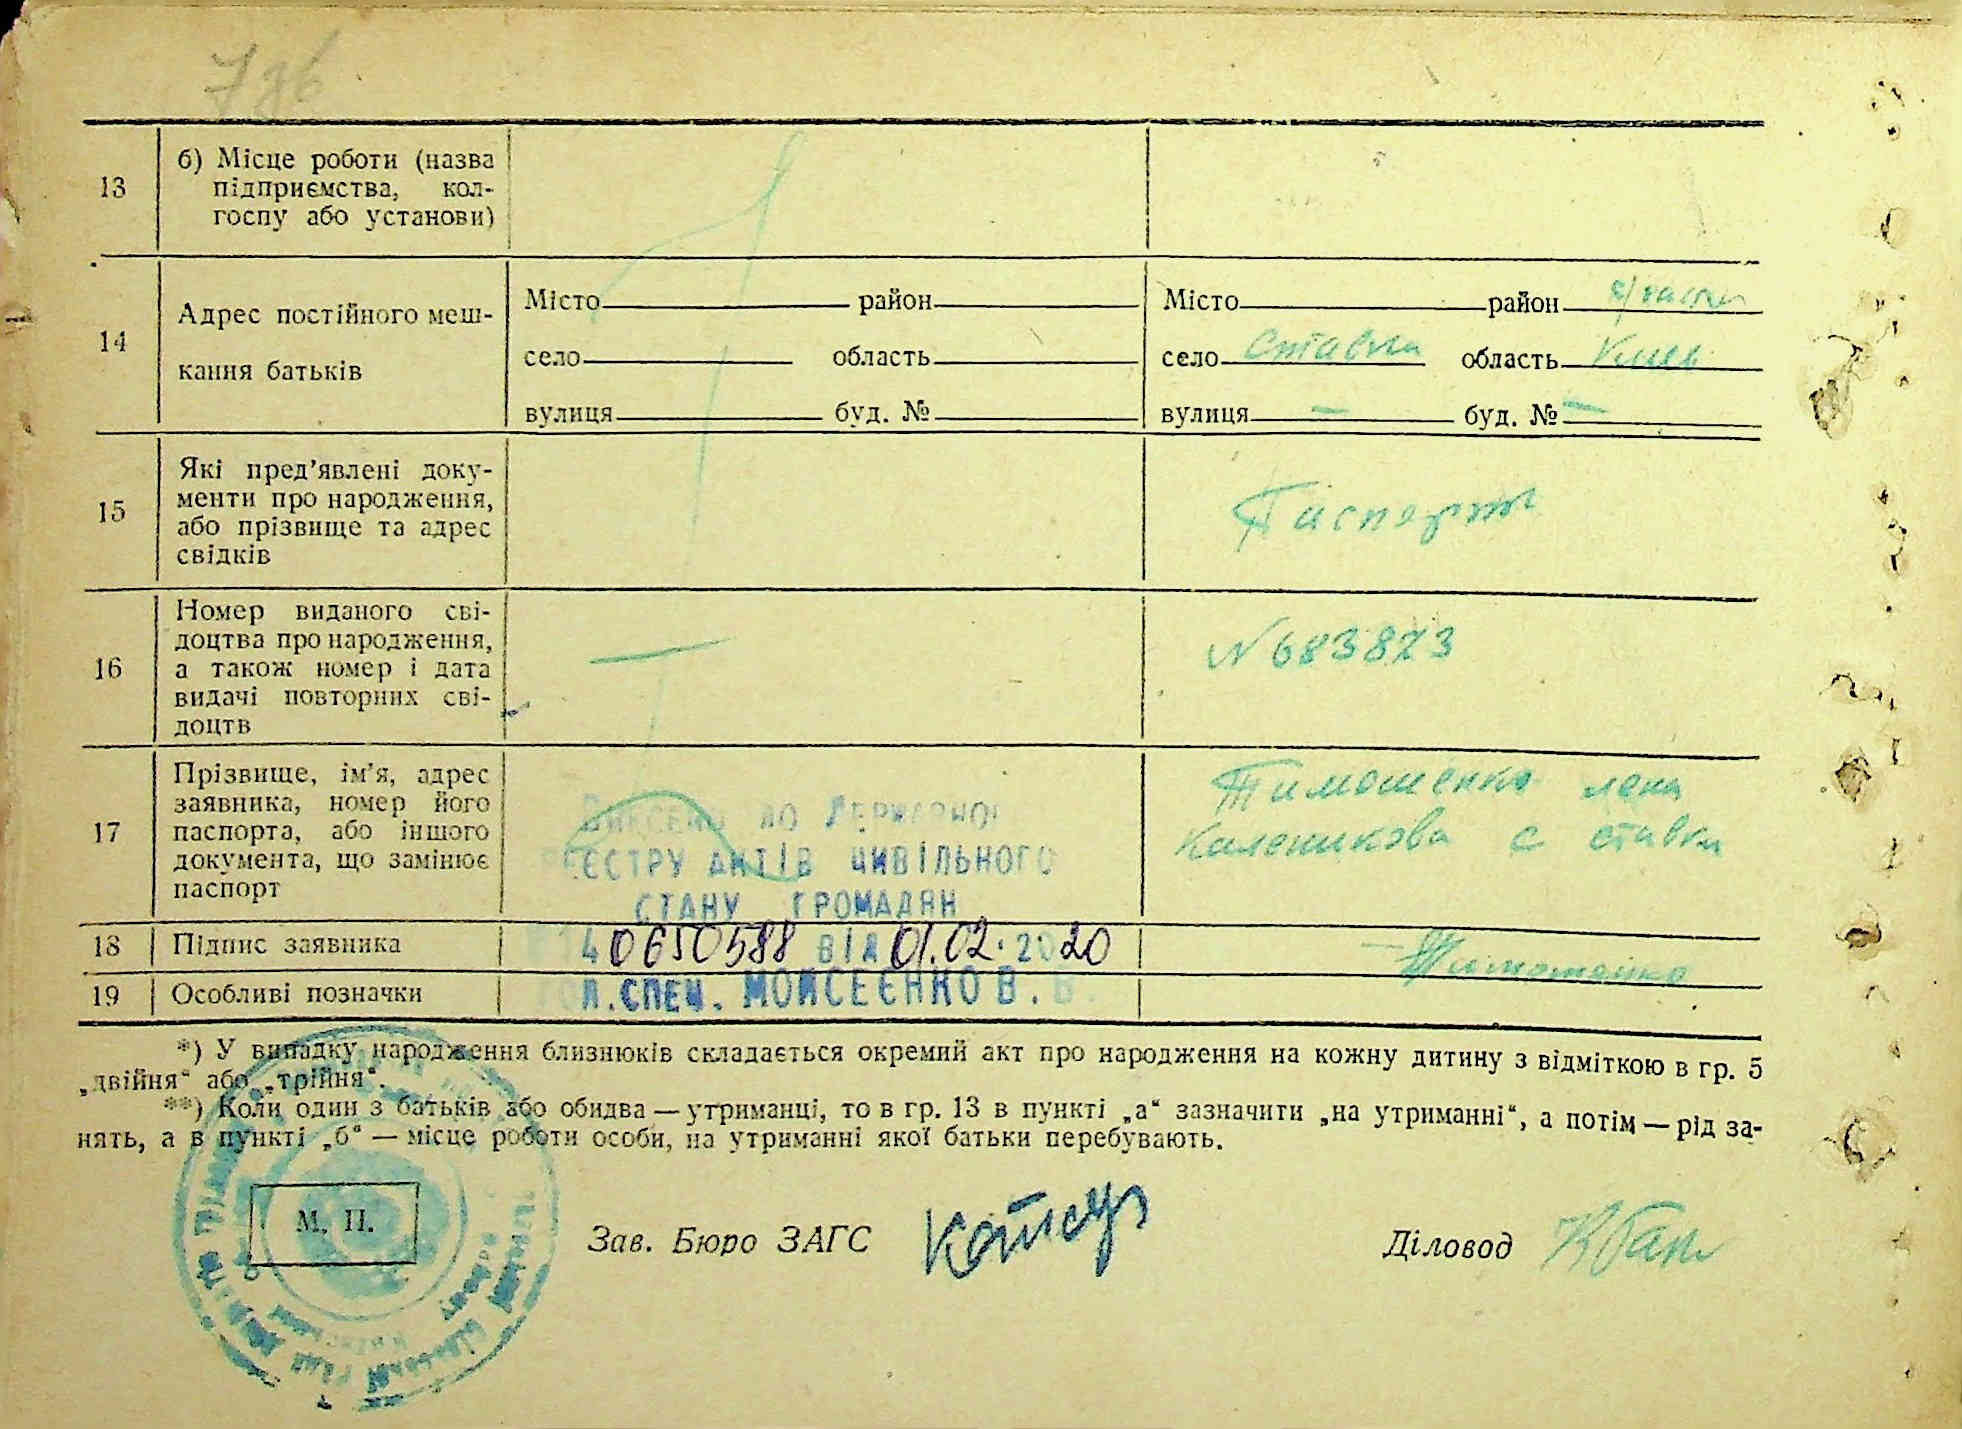 13
б) Місце роботи (назва
підприємства, кол-
госпу або установи)
14
Адрес постійного меш-
кання батьків
Місто район
село область
вулиця буд. №
Місто район
село Ставки область Киев
вулиця — буд. № —
15
Які пред'явлені доку-
менти про народження,
або прізвище та адрес
свідків
Паспорт
16
Номер виданого сві-
доцтва про народження,
а також номер і дата
видачі повторних сві-
доцтв
—
N 683873
17
Прізвище, ім'я, адрес
заявника, номер його
паспорта, або іншого
документа, що замінює
паспорт
Внесено до Державного
реєстру актів цивільного
стану громадян
Тимошенко
с Ставки
18
Підпис заявника
40650588 від 01.02.2020
Тимошенко
19
Особливі позначки
Гол.спец. Мойсеєнко В.В.
*) У випадку народження близнюків складається окремий акт про народження на кожну дитину з відміткою в гр. 5
„двійня“ або „трійня“.
**) Коли один з батьків або обидва — утриманці, то в гр. 13 в пункті „а“ зазначити „на утриманні“, а потім — рід за-
нять, а в пункті „б“ — місце роботи особи, на утриманні якої батьки перебувають.
М. П.
Зав. Бюро ЗАГС
Діловод